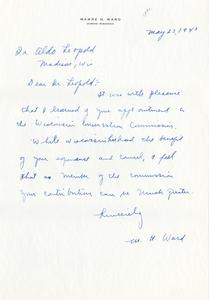 MAWRE H. WARD
May 23, 194
Dr. Aldo Leopold
Madison, Wis
Dear Dr. Leopold:-
It was with pleasure
that I learned of your appointment on
the Wisconsin Conservation Commission.
While Wisconsin has had the benefit
of your experience and counsel, I feel
that as member of the commission
your contribution can be much greater.
Sincerely
M. H. Ward